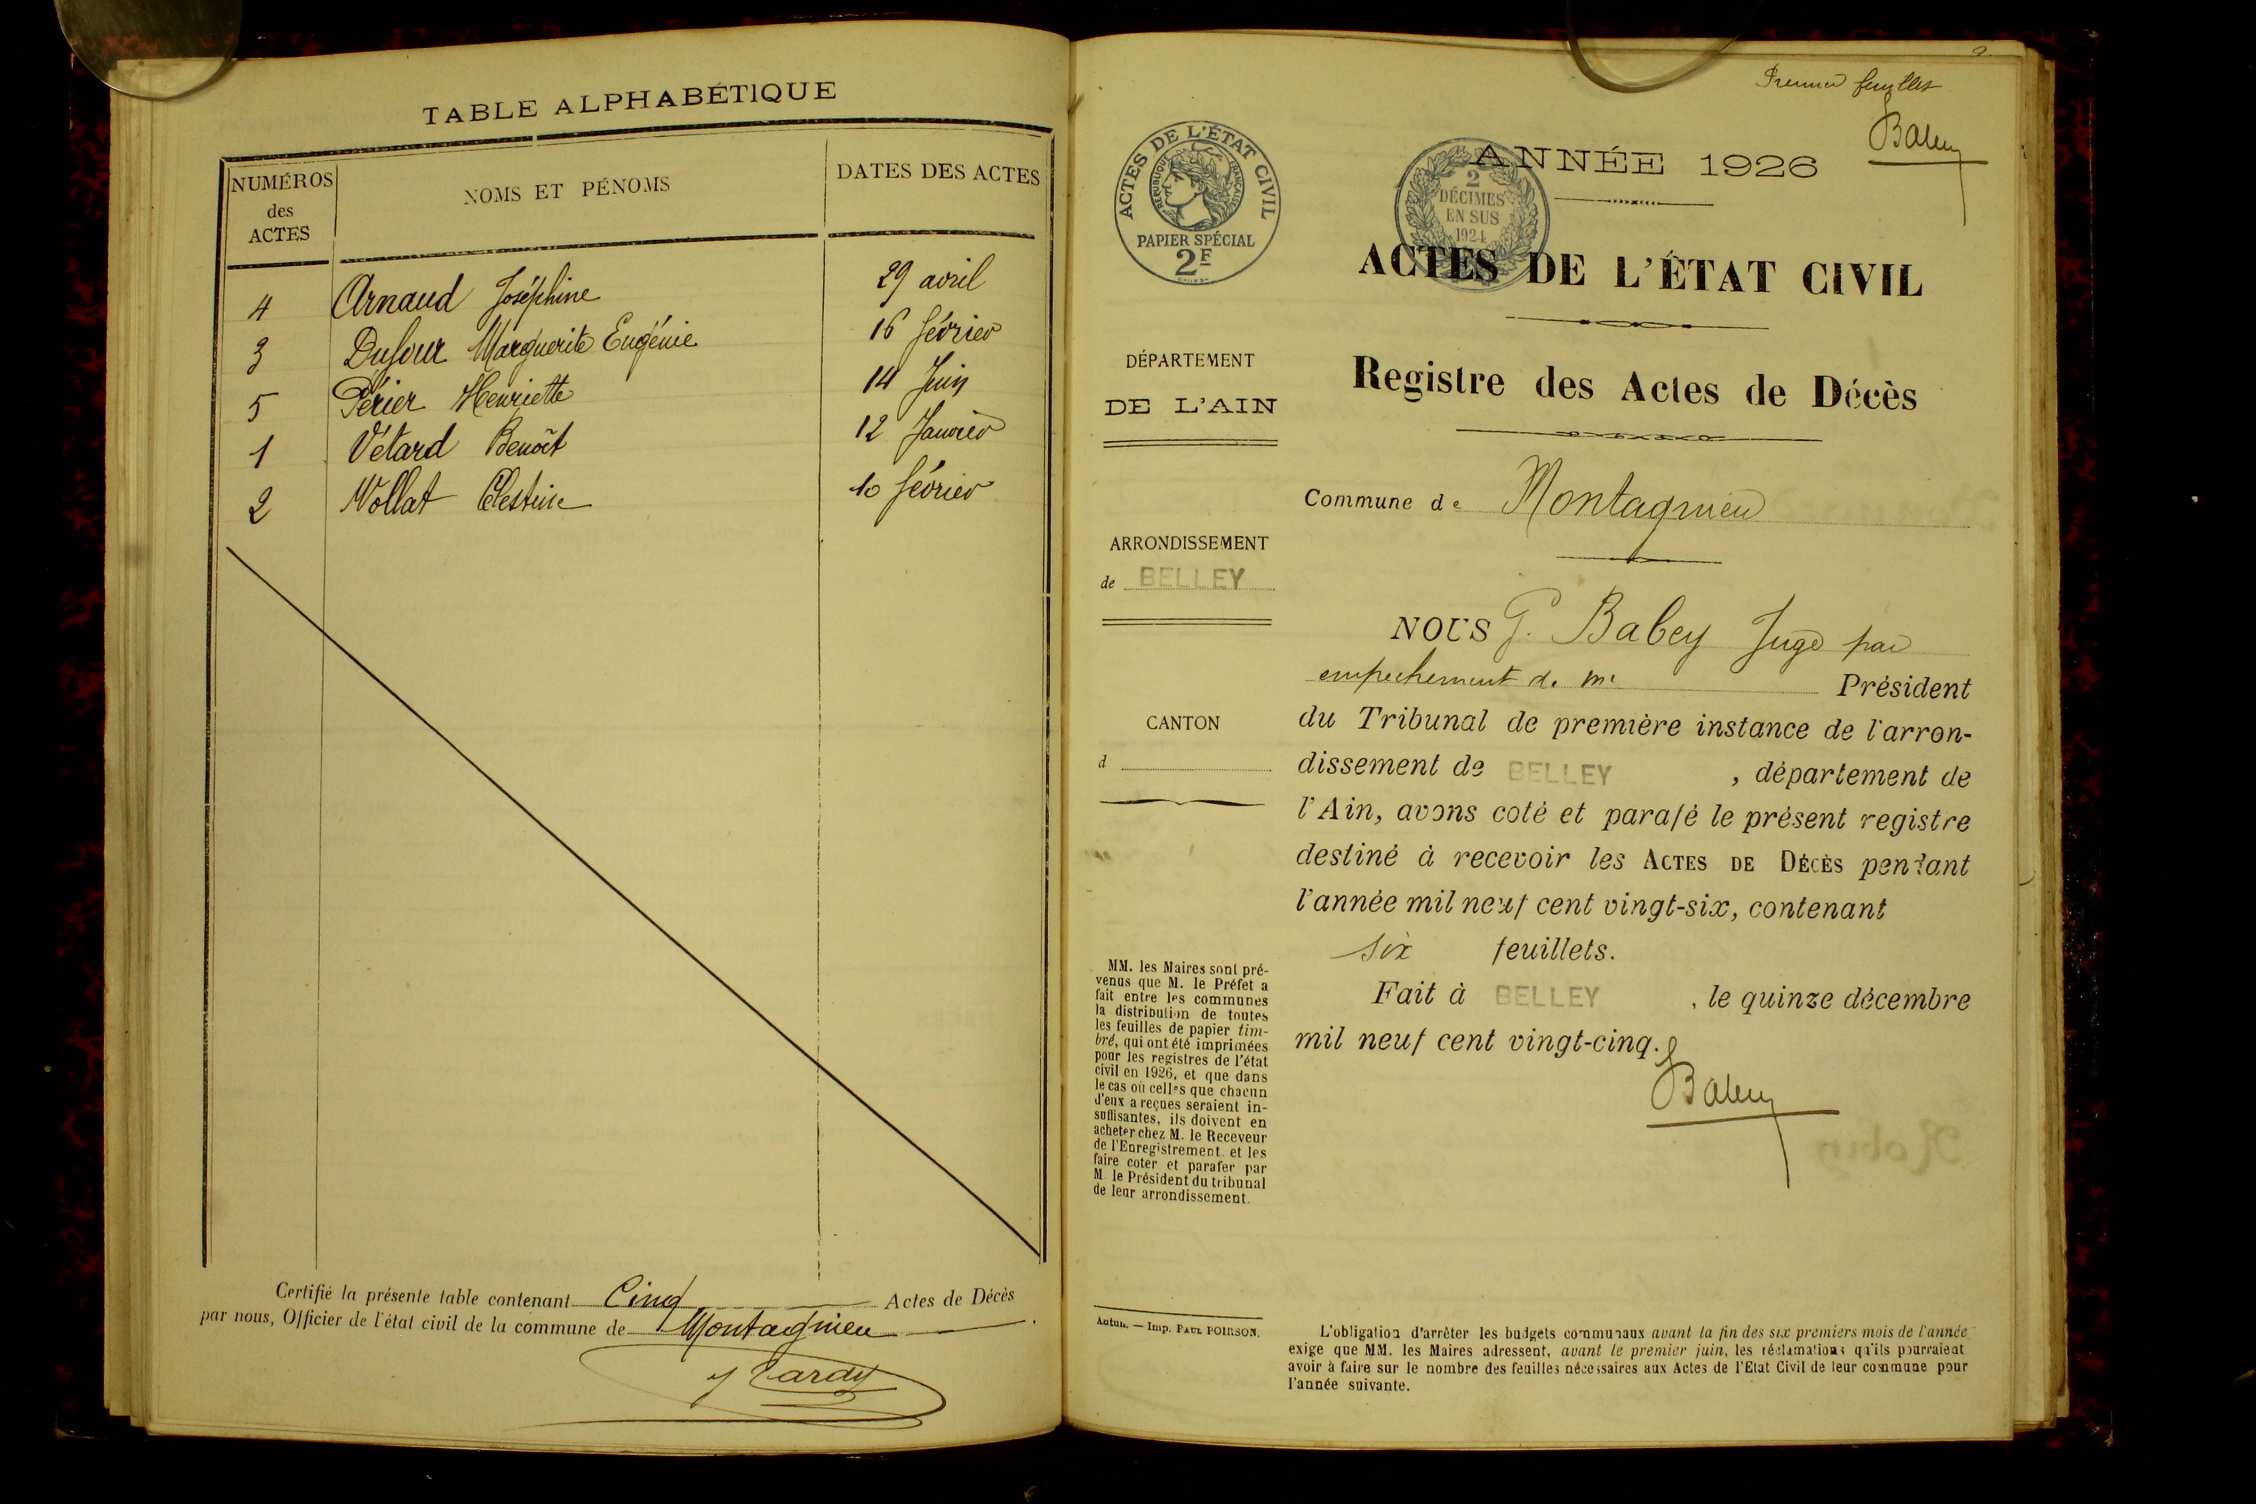 TABLE ALPHABÉTIQUE
NUMÉROS
des
ACTES
NOMS ET PÉNOMS
DATES DES ACTES
4 Arnaud Joséphine 29 avril
3 Dufour Marguerite Eugénie 16 février
5 Périer Henriette 14 Juin
1 Vétard Benoît 12 Janvier
2 Vollat Célestine 10 février
Certifié la présente table contenant Cinq Actes de Décès
par nous, Officier de l'état civil de la commune de Montagnieu
Premier feuillet
Babey
ACTES DE L'ÉTAT CIVIL
RÉPUBLIQUE FRANÇAISE
PAPIER SPÉCIAL
2F
2
DÉCIMES
EN SUS
1924
ANNÉE 1926
ACTES DE L'ÉTAT CIVIL
Registre des Actes de Décès
DÉPARTEMENT
DE L'AIN
ARRONDISSEMENT
de BELLEY
CANTON
d
MM. les Maires sont pré-
venus que M. le Préfet a
fait entre les communes
la distribution de toutes
les feuilles de papier tim-
bré, qui ont été imprimées
pour les registres de l'état
civil en 1926, et que dans
le cas où celles que chacun
d'eux a reçues seraient in-
suffisantes, ils doivent en
acheter chez M. le Receveur
de l'Enregistrement et les
faire coter et parafer par
M. le Président du tribunal
de leur arrondissement.
Autun. — Imp. PAUL POIRSON.
Commune de Montagnieu
NOUS G. Babey Juge par
empechement de Mr Président
du Tribunal de première instance de l'arron-
dissement de BELLEY, département de
l'Ain, avons coté et parafé le présent registre
destiné à recevoir les ACTES DE DÉCÈS pendant
l'année mil neuf cent vingt-six, contenant
six feuillets.
Fait à BELLEY, le quinze décembre
mil neuf cent vingt-cinq.
Babey
L'obligation d'arrêter les budgets communaux avant la fin des six premiers mois de l'année
exige que MM. les Maires adressent, avant le premier juin, les réclamations qu'ils pourraient
avoir à faire sur le nombre des feuilles nécessaires aux Actes de l'Etat Civil de leur commune pour
l'année suivante.